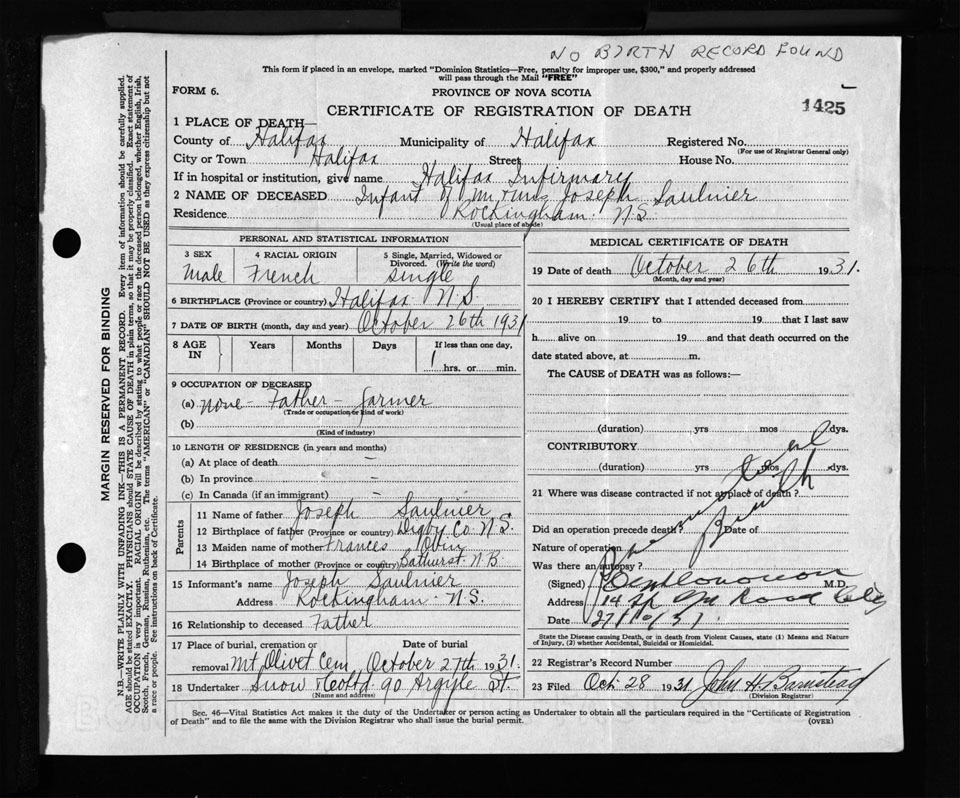 NO BIRTH RECORD FOUND
This form if placed in an envelope, marked "Dominion Statistics—Free, penalty for improper use, $300," and properly addressed
will pass through the Mail "FREE"
FORM 6. PROVINCE OF NOVA SCOTIA
CERTIFICATE OF REGISTRATION OF DEATH 1425
1 PLACE OF DEATH—
County of Halifax Municipality of Halifax Registered No.
(For use of Registrar General only)
City or Town Halifax Street House No.
If in hospital or institution, give name Halifax Infirmary
2 NAME OF DECEASED Infant of Mr & Mrs Joseph Saulnier
Residence Rockingham N.S.
(Usual place of abode)
PERSONAL AND STATISTICAL INFORMATION
3 SEX 4 RACIAL ORIGIN 5 Single, Married, Widowed or
Divorced. (Write the word)
Male French Single
6 BIRTHPLACE (Province or country) Halifax N.S.
7 DATE OF BIRTH (month, day and year) October 26th 1931
8 AGE IN Years Months Days If less than one day,
1 hrs. or min.
9 OCCUPATION OF DECEASED
(a) None - Father - Farmer
(Trade or occupation or kind of work)
(b)
(Kind of industry)
10 LENGTH OF RESIDENCE (in years and months)
(a) At place of death —
(b) In province —
(c) In Canada (if an immigrant) —
Parents
11 Name of father Joseph Saulnier
12 Birthplace of father (Province or country) Digby Co. N.S.
13 Maiden name of mother Frances
14 Birthplace of mother (Province or country) Bathurst N.B.
15 Informant's name Joseph Saulnier
Address Rockingham N.S.
16 Relationship to deceased Father
17 Place of burial, cremation or Date of burial
removal Mt Olivet Cem, October 27th 1931.
18 Undertaker Snow & Co Ltd. 90 Argyle St.
(Name and address)
MEDICAL CERTIFICATE OF DEATH
19 Date of death October 26th 1931.
(Month, day and year)
20 I HEREBY CERTIFY that I attended deceased from
19 to 19 that I last saw
h alive on 19 and that death occurred on the
date stated above, at m.
The CAUSE of DEATH was as follows:—
(duration) yrs mos dys.
CONTRIBUTORY
(duration) yrs mos dys.
Birth
21 Where was disease contracted if not at place of death?
Did an operation precede death? Date of
Nature of operation
Was there an autopsy?
(Signed) M.D.
Address 14 Road
Date 27/10/31.
State the Disease causing Death, or in death from Violent Causes, state (1) Means and Nature
of Injury, (2) whether Accidental, Suicidal or Homicidal.
22 Registrar's Record Number
23 Filed Oct 28 1931 John H. Barnstead
(Division Registrar)
Sec. 46—Vital Statistics Act makes it the duty of the Undertaker or person acting as Undertaker to obtain all the particulars required in the "Certificate of Registration
of Death" and to file the same with the Division Registrar who shall issue the burial permit. (OVER)
MARGIN RESERVED FOR BINDING
N.B.—WRITE PLAINLY WITH UNFADING INK—THIS IS A PERMANENT RECORD. Every item of information should be carefully supplied.
AGE should be stated EXACTLY. PHYSICIANS should STATE CAUSE OF DEATH in plain terms, so that it may be properly classified. Exact statement of
OCCUPATION is very important. RACIAL ORIGIN will be described by stating to what people or race the deceased person belonged, whether English, Irish,
Scotch, French, German, Russian, Ruthenian, etc. The terms "AMERICAN" or "CANADIAN" SHOULD NOT BE USED as they express citizenship but not
a race or people. See instructions on back of Certificate.